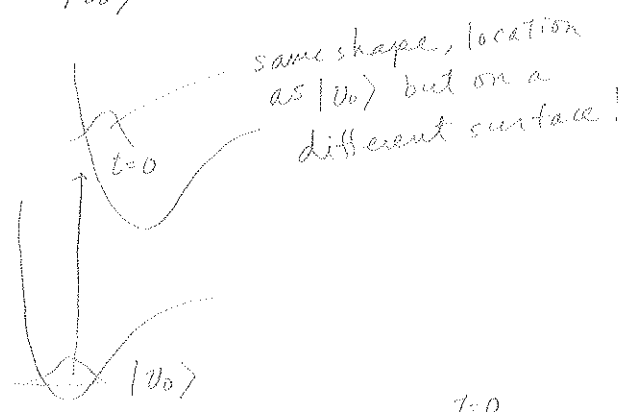 same shape, location
as |v₀⟩ but on a
different surface!
t=0
|v₀⟩
t=0